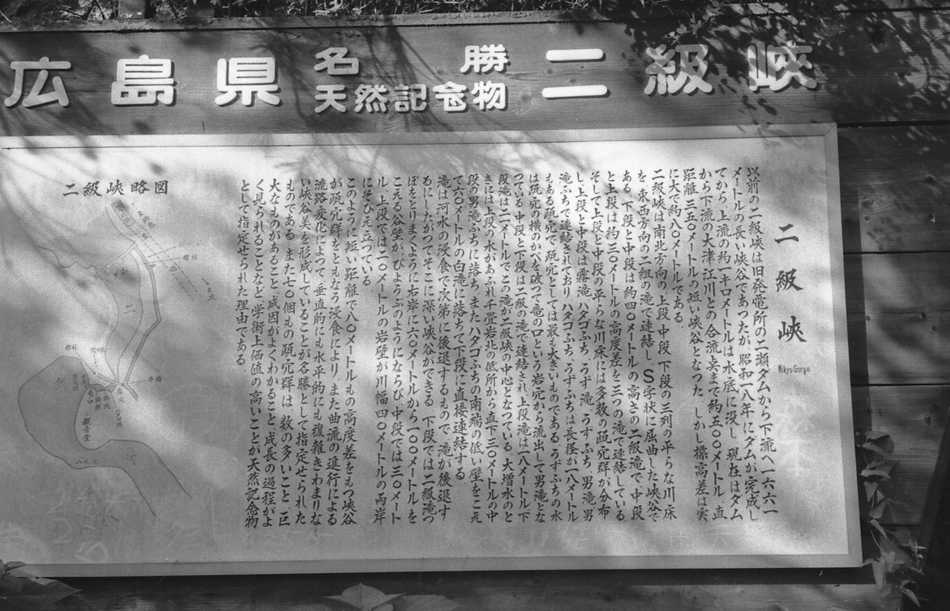 広島県 名勝 天然記念物 二級峡
二級峡
Nikyu Gorge
以前の二級峡は旧発電所の二瀬ダムから下流へ一六六一
メートルの長い峡谷であつたが、昭和一八年にダムが完成し
てから、上流の約一キロメートルは水底に没し 現在はダム
から下流の大津江川との合流点まで約五〇〇メートル 直
距離三五〇メートルの短い峡谷となつた しかし標高差は実
に大で約八〇メートルである
二級峡は南北方向の上段 中段 下段の三列の平らな川床
を 東西方向の二組の滝で連結し S字状に屈曲した峡谷で
ある 下段と中段は約四〇メートル の高さの二級滝で 中段
と上段は約三〇メートルの高度差を三つの滝で連結している
そして上段と中段の平らな川床には多数の甌穴群が分布
し 上段と中段は霧滝 ハタゴふち うすふち 男滝
滝ふちで連結されており ハタゴふち うすふちは長径が一八メートル
もある 甌穴で甌穴としては最も大きいものである うすふちの水
は甌穴の横のかべを破つて竜の口という岩穴から流出して男滝とな
る 中段と下段は二級の滝で連結され 上段滝は一八メートル 下
段滝は二一メートルでこの滝が二級峡の中心となつている 大増水のと
きには上段の水があふれ千畳岩北の低所から直下三〇メートルの中
段の男滝ふちに落ち またハタゴふちの南端の低い壁をこえ
て六〇メートルの白滝に落ちて下段に直接連結する
滝は河水の浸食で次第に後退するもので 滝が後退す
るにしたがつてそこに深い峡谷ができる 下段では二級滝つ
ぼをとりまくように右岸に六〇メートルから一〇〇メートルを
こえる公壁が びようぶのようにならび 中段では三〇メート
ル 上段では二〇メートルの岩壁が川幅四〇メートルの両岸
にそびえ立つている
このように短い距離で八〇メートルもの高度差をもつ峡谷
が甌穴群をともなう浸食により また曲流の進行による
流路変化によつて 垂直的にも水平的にも複雑きわまりな
い峡谷美を形成していることが名勝として指定せられた
ものである また七〇個もの甌穴群は 数の多いこと 巨
大なものがあること 成因がよくわかること 成長の過程がよ
く見られることなど 学術上価値の高いことが天然記念物
として指定せられた理由である
二級峡略図